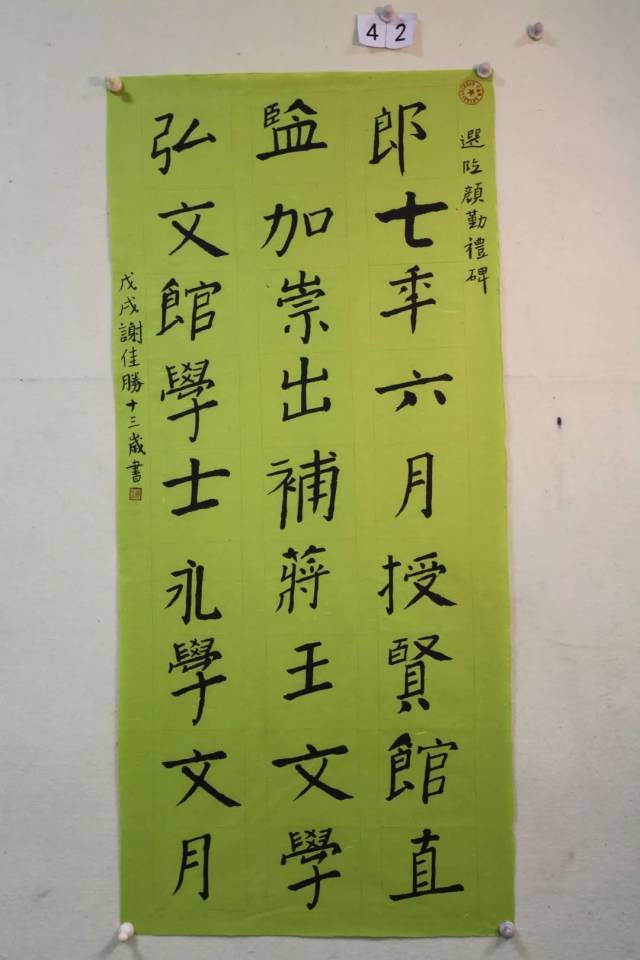 42
選临顏勤禮碑
郎七年六月授賢館直
監加崇出補蔣王文學
弘文館學士永學文月
戊戌謝佳勝十三歲書